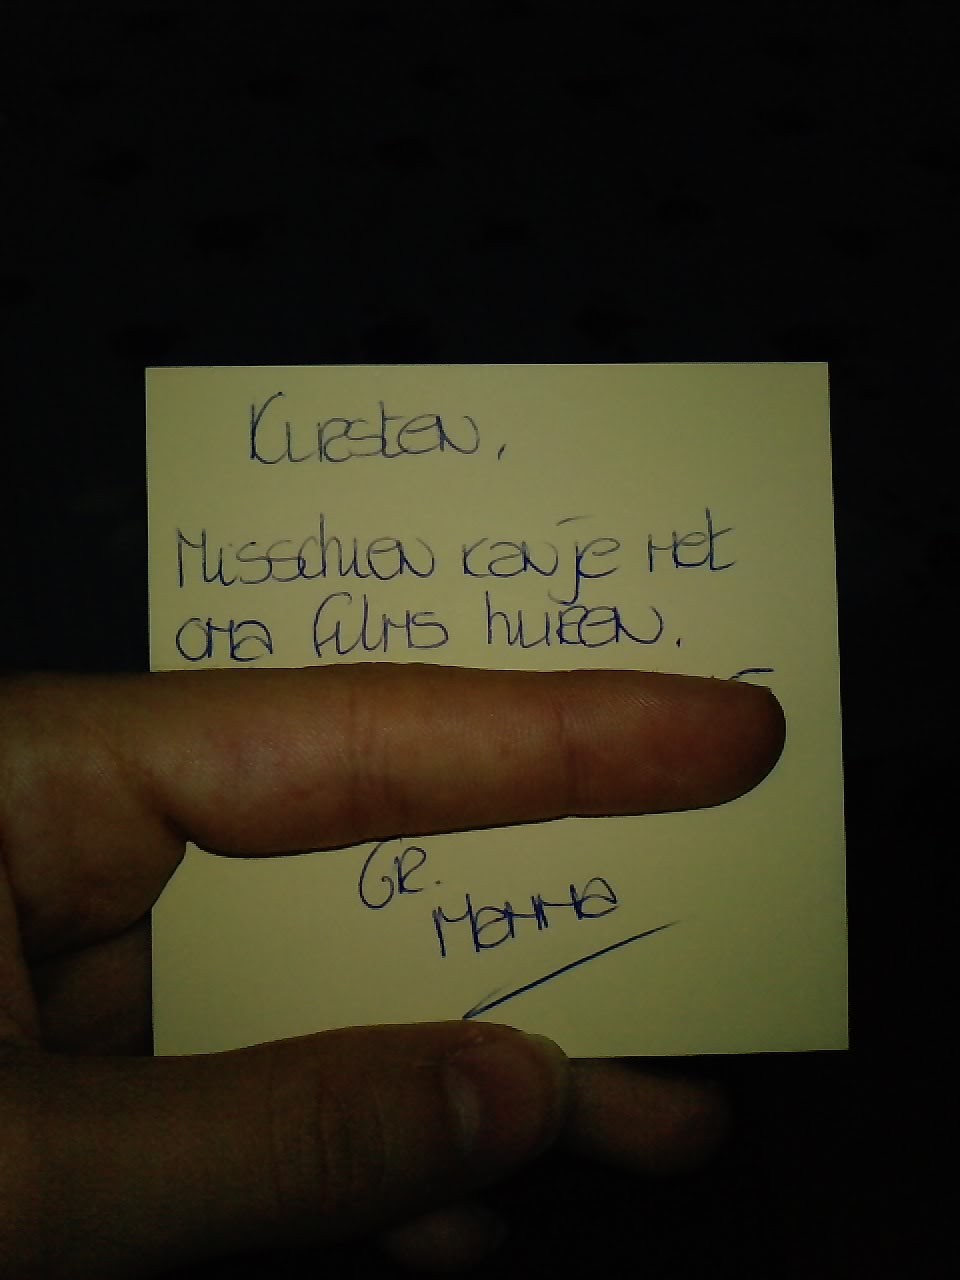 Kirsten,
Misschien kan je met
oma films huren.
Gr.
Mamma